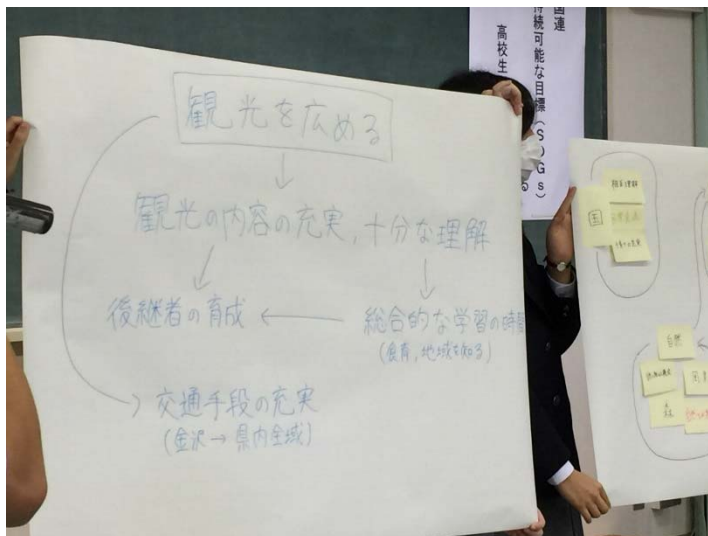 観光を広める
観光の内容の充実，十分な理解
後継者の育成
総合的な学習の時間
(食育，地域を知る)
交通手段の充実
(金沢→県内全域)
国連
持続可能な目標(SDGs)
高校生
国
自然
森